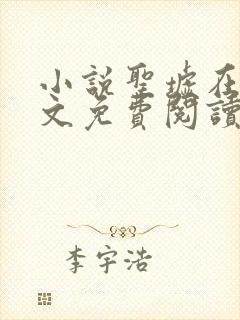 小說聖墟在
文免費閱讀
李宇浩